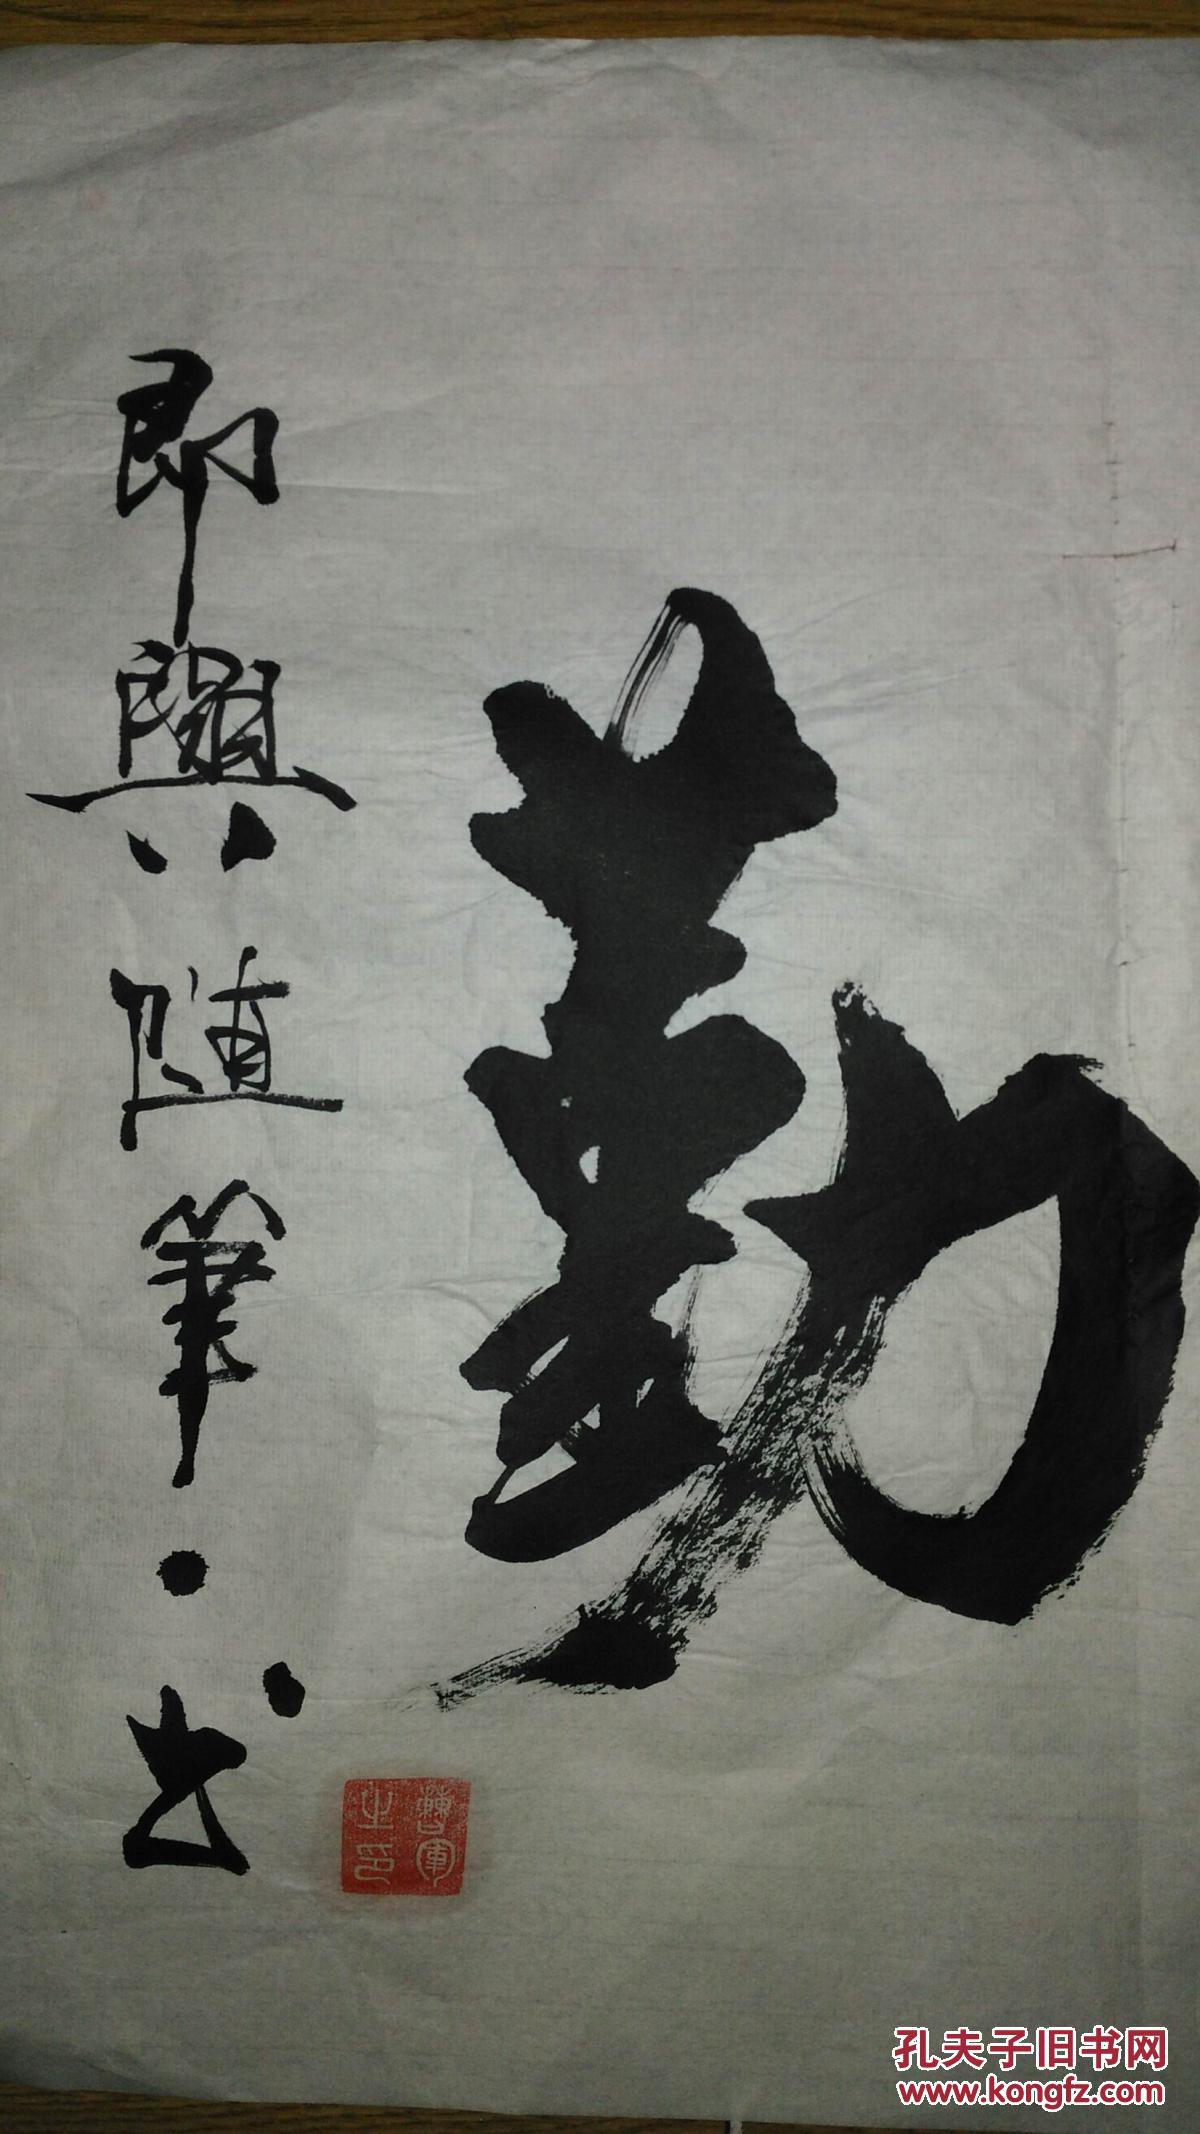 勤
即興随筆·书
之印
孔夫子旧书网
www.kongfz.com